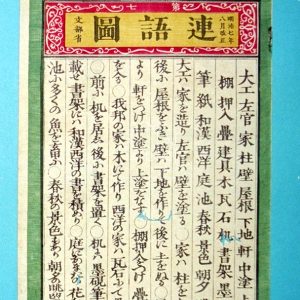 第七
明治七年
八月改正
連語圖
文部省
大工 左官 家 柱 壁 屋根 下地 軒 中塗 上
棚 押入 疊 建具 木 瓦 石 机 書架 墨
筆 紙 和漢 西洋 庭 池 春秋 景色 朝夕
大工ハ家を造り左官ハ壁を塗る○家ハ柱を
後小屋根をふき壁ハ下地を作り後に土を
より軒をつけ中塗より上塗となす○棚押入
○我邦の家ハ木にて作り西洋の家ハ瓦石ふて
○前小机を居ゑ後ろ小書架を置く○机ハ墨硯筆
載せ書架にハ和漢西洋の書を積め○庭にハ花
池小多くの魚を○春秋の景色あり朝